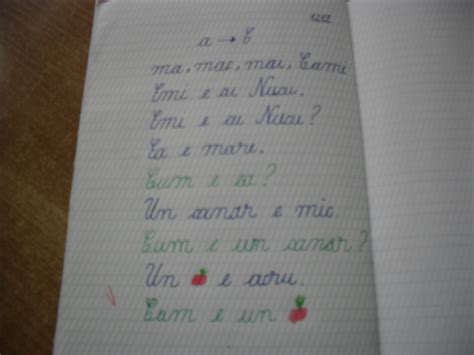 a → C
ma, mac, mai, Cami
Emi e cu Nucu.
Emi e cu Nucu?
Ea e mare.
Cum e ea?
Un canar e mic.
Cum e un canar?
Un e acru.
Cum e un